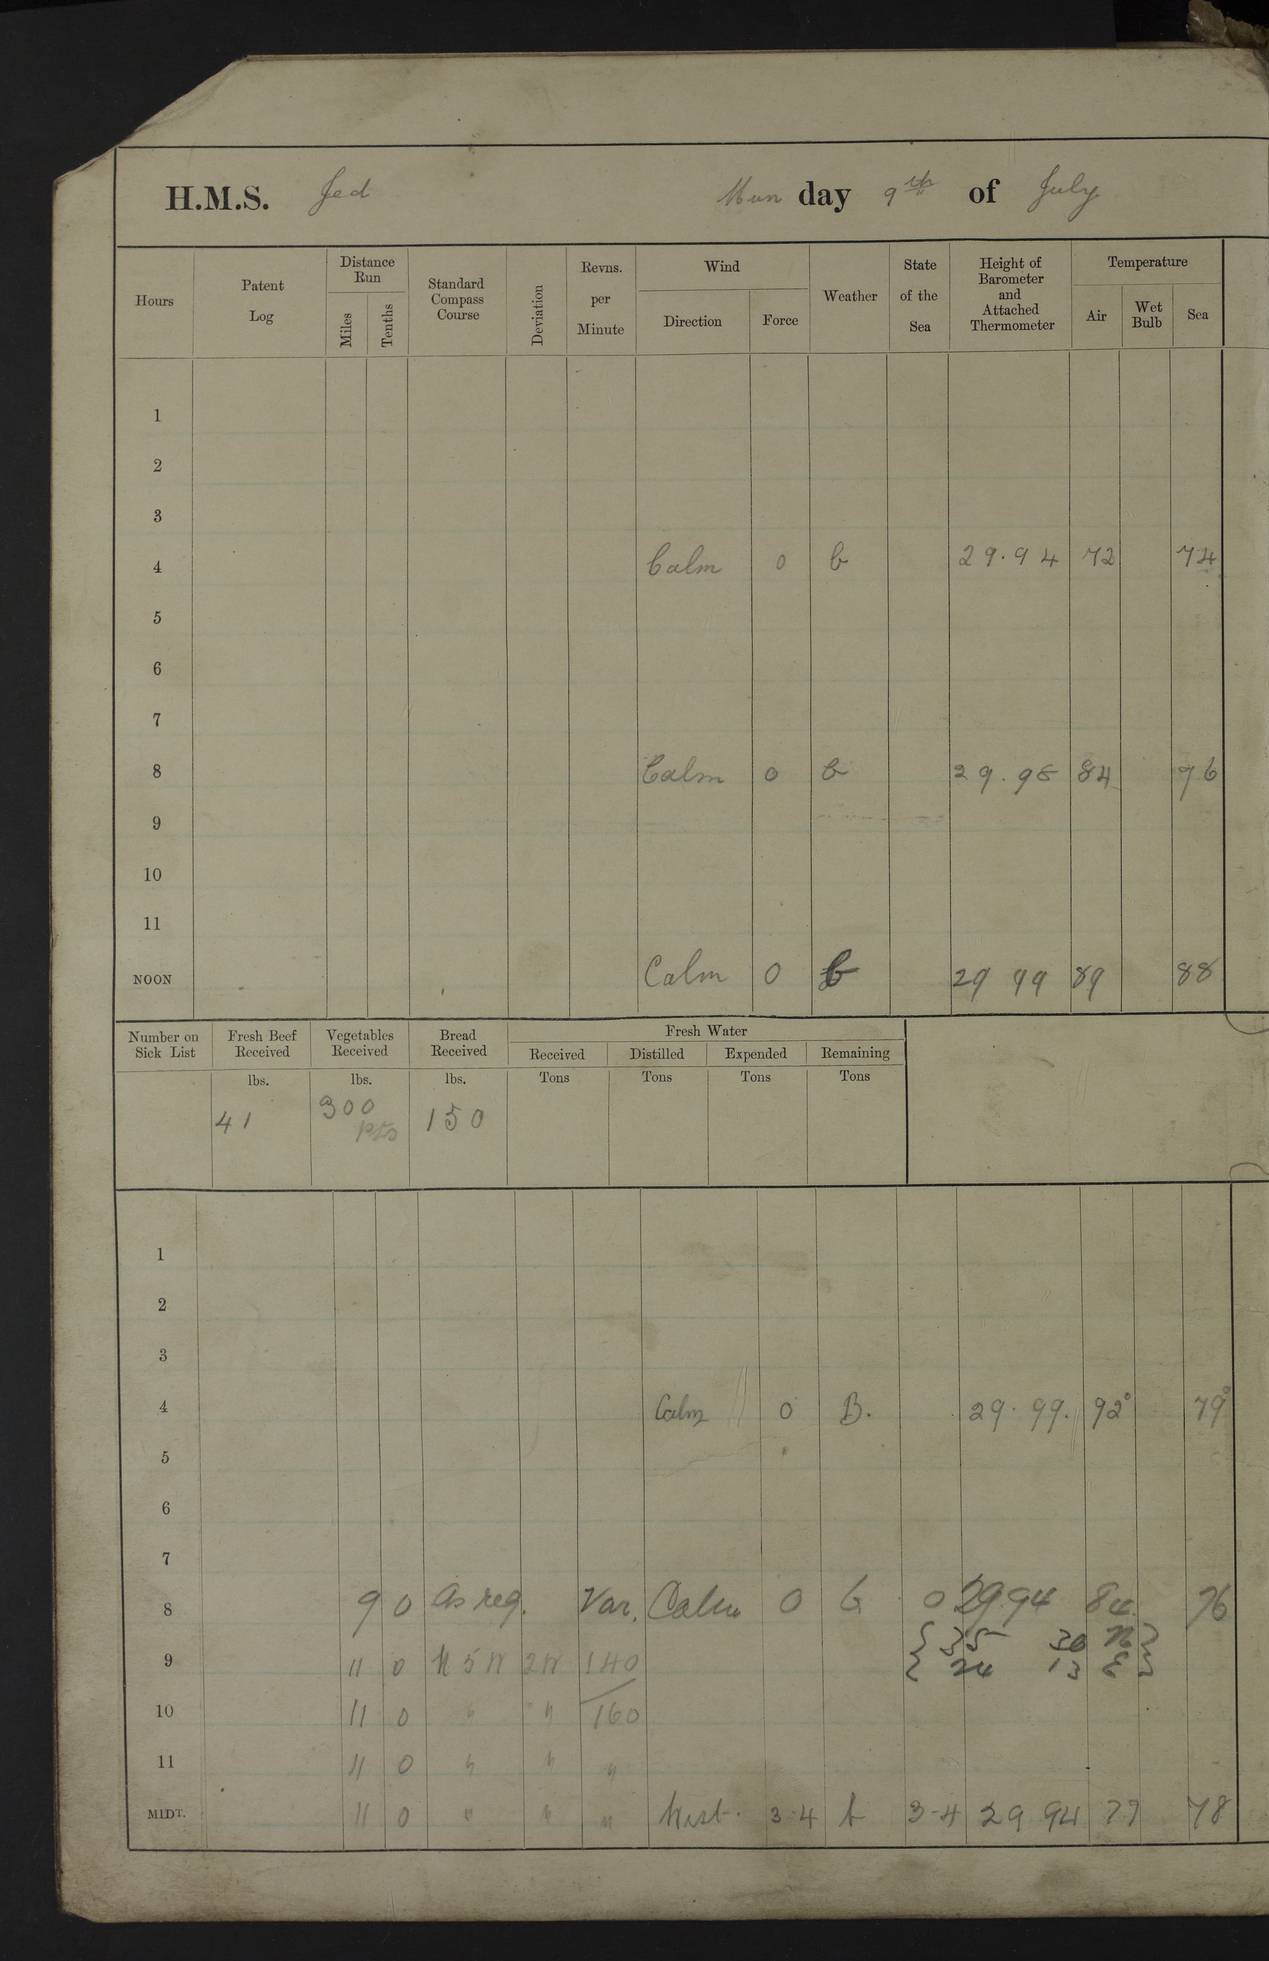 H.M.S. Jed Mon day 9th of July
Hours Patent Log Distance Run Miles Tenths Standard Compass Course Deviation Revns. per Minute Wind Direction Force Weather State of the Sea Height of Barometer and Attached Thermometer Temperature Air Wet Bulb Sea
1
2
3
4 Calm 0 b 29.94 72 74
5
6
7
8 Calm 0 b 29.98 84 76
9
10
11
NOON Calm 0 b 29 99 89 88
Number on Sick List Fresh Beef Received Vegetables Received Bread Received Fresh Water
Received Distilled Expended Remaining
lbs. lbs. lbs. Tons Tons Tons Tons
41 300 150
1
2
3
4 Calm 0 B. 29.99. 92° 79°
5
6
7
8 9 0 As req. Var. Calm 0 b 0 29.94 84 76
{ 35 30 N }
9 11 0 N 5 W 2W 140 { 24 13 E }
10 11 0 " " 160
11 11 0 " " "
MIDT. 11 0 " " " West. 3-4 b 3-4 29 94 77 78